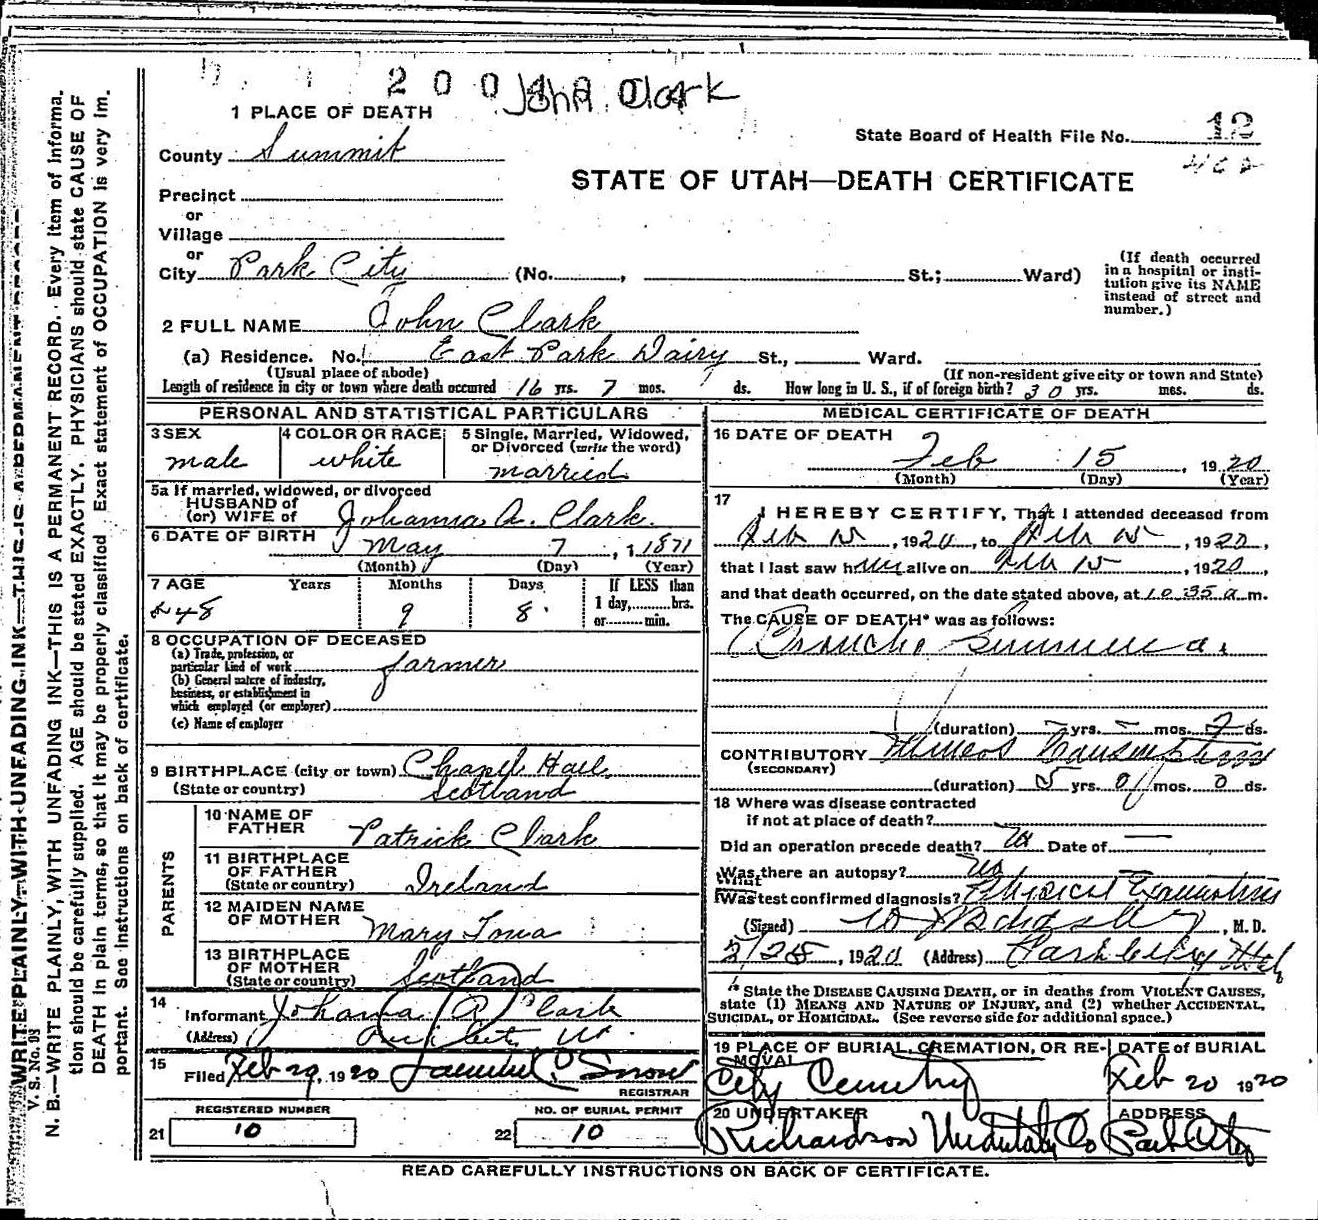 John Clark
1 PLACE OF DEATH
State Board of Health File No. 12
462
County Summit
STATE OF UTAH—DEATH CERTIFICATE
Precinct
or
Village
or
City Park City (No. , St.; Ward)
(If death occurred in a hospital or insti-
tution give its NAME instead of street and number.)
2 FULL NAME John Clark
(a) Residence. No. East Park Dairy St., Ward.
(Usual place of abode) (If non-resident give city or town and State)
Length of residence in city or town where death occurred 16 yrs. 7 mos. ds. How long in U. S., if of foreign birth? 30 yrs. mos. ds.
PERSONAL AND STATISTICAL PARTICULARS
3 SEX
male
4 COLOR OR RACE
white
5 Single, Married, Widowed,
or Divorced (write the word)
married
5a If married, widowed, or divorced
HUSBAND of
(or) WIFE of Johanna A. Clark.
6 DATE OF BIRTH May 7, 1 1871
(Month) (Day) (Year)
7 AGE Years Months Days If LESS than
48 9 8 1 day, hrs.
or min.
8 OCCUPATION OF DECEASED
(a) Trade, profession, or
particular kind of work farmer
(b) General nature of industry,
business, or establishment in
which employed (or employer)
(c) Name of employer
9 BIRTHPLACE (city or town) Chapel Hall
(State or country) Scotland
PARENTS
10 NAME OF
FATHER Patrick Clark
11 BIRTHPLACE
OF FATHER
(State or country) Ireland
12 MAIDEN NAME
OF MOTHER Mary
13 BIRTHPLACE
OF MOTHER
(State or country) Scotland
14 Informant Johanna A Clark
(Address) Park City Ut
15 Filed Feb 29, 1920 Snow
REGISTRAR
REGISTERED NUMBER NO. OF BURIAL PERMIT
21 10 22 10
MEDICAL CERTIFICATE OF DEATH
16 DATE OF DEATH
Feb 15, 1920
(Month) (Day) (Year)
17 I HEREBY CERTIFY, That I attended deceased from
Feb 15, 1920, to Feb 15, 1920,
that I last saw him alive on Feb 15, 1920,
and that death occurred, on the date stated above, at 10 35 a m.
The CAUSE OF DEATH* was as follows:
Broncho Pneumonia.
(duration) – yrs. – mos. 2 ds.
CONTRIBUTORY Miners Consumption
(SECONDARY)
(duration) 5 yrs. 0 mos. 0 ds.
18 Where was disease contracted
if not at place of death?
Did an operation precede death? No Date of —
Was there an autopsy? No
What test confirmed diagnosis? Physical Examination
(Signed) , M. D.
2/28, 1920 (Address) Park City Utah
* State the DISEASE CAUSING DEATH, or in deaths from VIOLENT CAUSES,
state (1) MEANS AND NATURE OF INJURY, and (2) whether ACCIDENTAL,
SUICIDAL, or HOMICIDAL. (See reverse side for additional space.)
19 PLACE OF BURIAL, CREMATION, OR RE-
MOVAL
City Cemetery
DATE of BURIAL
Feb 20 1920
20 UNDERTAKER
Richardson Undertaking Co
ADDRESS
Park City
READ CAREFULLY INSTRUCTIONS ON BACK OF CERTIFICATE.
WRITE PLAINLY WITH UNFADING INK—THIS IS A PERMANENT RECORD
V. S. No. 93
N. B.—WRITE PLAINLY, WITH UNFADING INK—THIS IS A PERMANENT RECORD. Every item of informa-
tion should be carefully supplied. AGE should be stated EXACTLY. PHYSICIANS should state CAUSE OF
DEATH in plain terms, so that it may be properly classified. Exact statement of OCCUPATION is very im-
portant. See instructions on back of certificate.